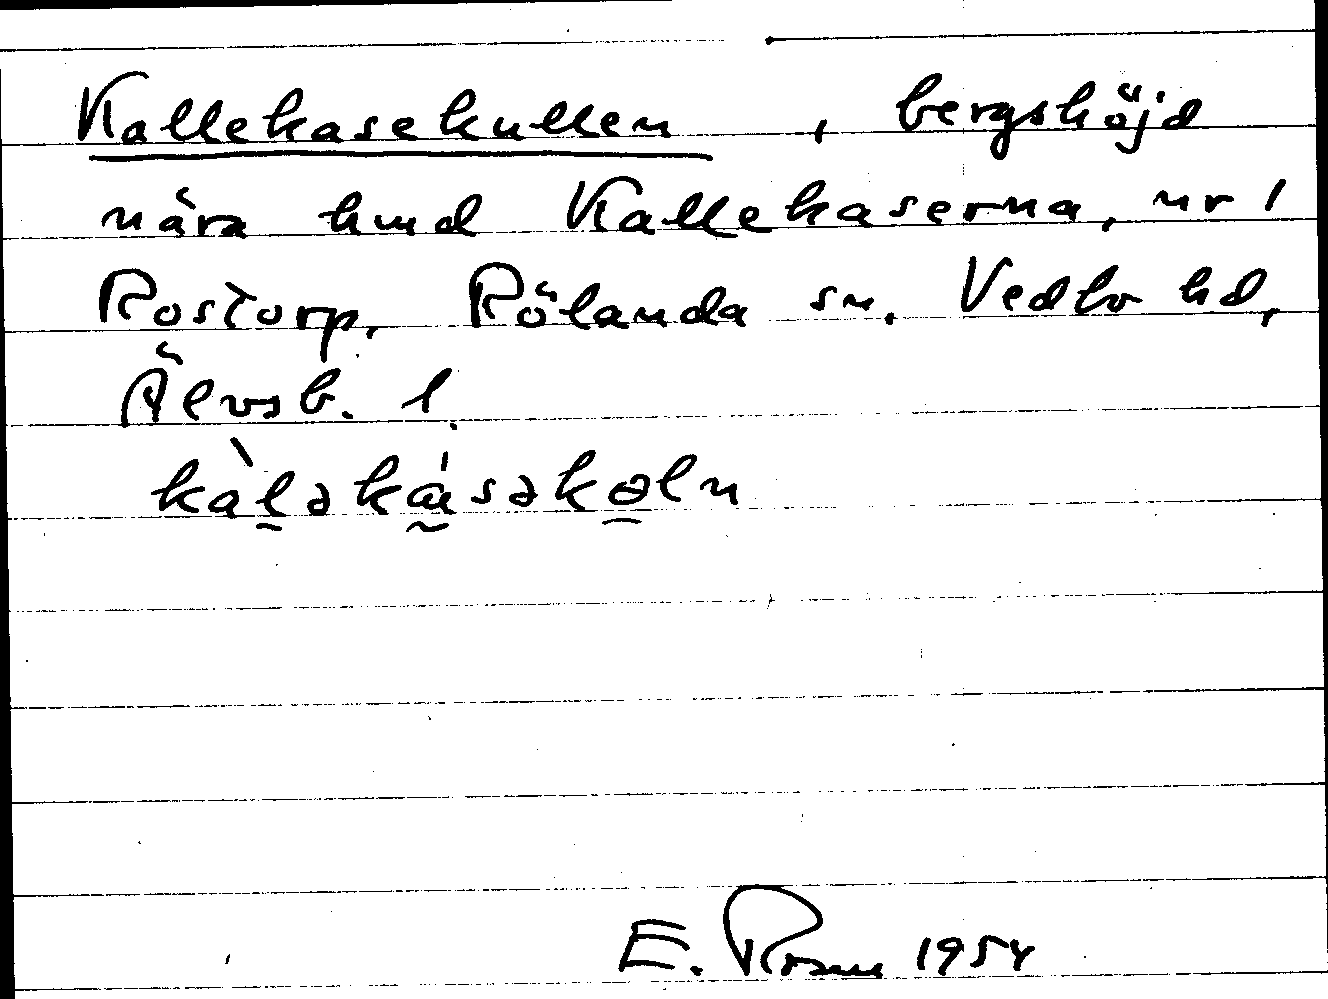 Kallekasekullen, bergshöjd
nära hmd Kallekaserna, nr 1
Rostorp, Rölanda sn, Vedbo hd,
Älvsb. l.
kàləkásəkɵln
E. Rosell 1954